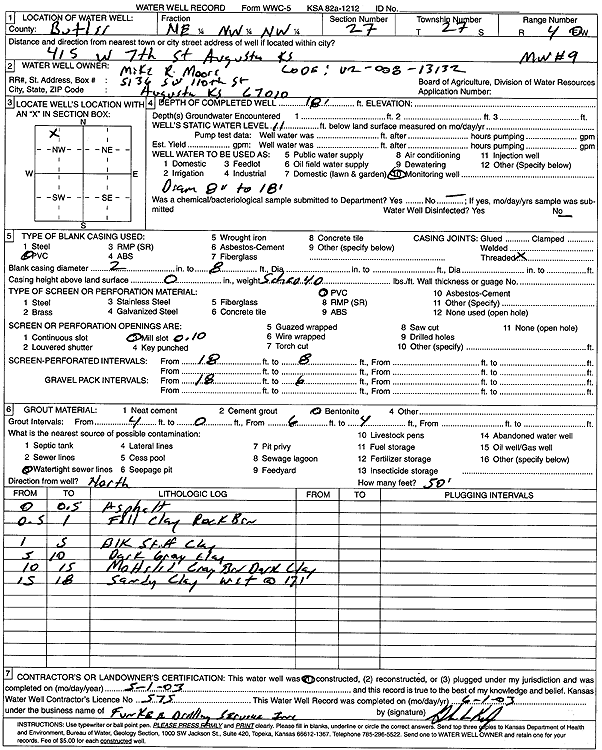 WATER WELL RECORD Form WWC-5 KSA 82a-1212 ID No.
1 LOCATION OF WATER WELL: Fraction Section Number Township Number Range Number
County: Butler NE ¼ NW ¼ NW ¼ 27 T 27 S R 4 E W
Distance and direction from nearest town or city street address of well if located within city?
415 W 7th St Augusta KS MW#9
2 WATER WELL OWNER: Mike R. Moore Code: U2-008-13132
RR#, St. Address, Box # : 5136 SW 110th St Board of Agriculture, Division of Water Resources
City, State, ZIP Code : Augusta KS 67010 Application Number:
3 LOCATE WELL'S LOCATION WITH AN "X" IN SECTION BOX:
N
X
NW NE
W E
SW SE
S
4 DEPTH OF COMPLETED WELL 18' ft. ELEVATION:
Depth(s) Groundwater Encountered 1 ft. 2 ft. 3 ft.
WELL'S STATIC WATER LEVEL 11 ft. below land surface measured on mo/day/yr
Pump test data: Well water was ft. after hours pumping gpm
Est. Yield gpm: Well water was ft. after hours pumping gpm
WELL WATER TO BE USED AS: 5 Public water supply 8 Air conditioning 11 Injection well
1 Domestic 3 Feedlot 6 Oil field water supply 9 Dewatering 12 Other (Specify below)
2 Irrigation 4 Industrial 7 Domestic (lawn & garden) 10 Monitoring well
Diam 8" to 18'
Was a chemical/bacteriological sample submitted to Department? Yes No ; If yes, mo/day/yrs sample was submitted Water Well Disinfected? Yes No
5 TYPE OF BLANK CASING USED: 5 Wrought iron 8 Concrete tile CASING JOINTS: Glued Clamped
1 Steel 3 RMP (SR) 6 Asbestos-Cement 9 Other (specify below) Welded
PVC 4 ABS 7 Fiberglass Threaded X
Blank casing diameter 2 in. to 8 ft., Dia in. to ft., Dia in. to ft.
Casing height above land surface 0 in., weight Sched 40 lbs./ft. Wall thickness or guage No.
TYPE OF SCREEN OR PERFORATION MATERIAL: PVC 10 Asbestos-Cement
1 Steel 3 Stainless Steel 5 Fiberglass 8 RMP (SR) 11 Other (Specify)
2 Brass 4 Galvanized Steel 6 Concrete tile 9 ABS 12 None used (open hole)
SCREEN OR PERFORATION OPENINGS ARE: 5 Guazed wrapped 8 Saw cut 11 None (open hole)
1 Continuous slot Mill slot 0.10 6 Wire wrapped 9 Drilled holes
2 Louvered shutter 4 Key punched 7 Torch cut 10 Other (specify) ft.
SCREEN-PERFORATED INTERVALS: From 18 ft. to 8 ft., From ft. to ft.
From ft. to ft., From ft. to ft.
GRAVEL PACK INTERVALS: From 18 ft. to 6 ft., From ft. to ft.
From ft. to ft., From ft. to ft.
6 GROUT MATERIAL: 1 Neat cement 2 Cement grout Bentonite 4 Other
Grout Intervals: From 4 ft. to 0 ft., From 6 ft. to 4 ft., From ft. to ft.
What is the nearest source of possible contamination: 10 Livestock pens 14 Abandoned water well
1 Septic tank 4 Lateral lines 7 Pit privy 11 Fuel storage 15 Oil well/Gas well
2 Sewer lines 5 Cess pool 8 Sewage lagoon 12 Fertilizer storage 16 Other (specify below)
Watertight sewer lines 6 Seepage pit 9 Feedyard 13 Insecticide storage
Direction from well? North How many feet? 50'
FROM TO LITHOLOGIC LOG FROM TO PLUGGING INTERVALS
0 0.5 Asphalt
0.5 1 Fill Clay Rock Brn
1 5 Blk Stiff Clay
5 10 Dark Gray Clay
10 15 Mottled Gray Brn Dark Clay
15 18 Sandy Clay wet @ 17'
7 CONTRACTOR'S OR LANDOWNER'S CERTIFICATION: This water well was (1) constructed, (2) reconstructed, or (3) plugged under my jurisdiction and was
completed on (mo/day/year) 5-1-03 and this record is true to the best of my knowledge and belief. Kansas
Water Well Contractor's Licence No 575 This Water Well Record was completed on (mo/day/yr) 6-1-03
under the business name of Funk & R Drilling Service Inc by (signature)
INSTRUCTIONS: Use typewriter or ball point pen. PLEASE PRESS FIRMLY and PRINT clearly. Please fill in blanks, underline or circle the correct answers. Send top three copies to Kansas Department of Health
and Environment, Bureau of Water, Geology Section, 1000 SW Jackson St., Suite 420, Topeka, Kansas 66612-1367. Telephone 785-296-5522. Send one to WATER WELL OWNER and retain one for your
records. Fee of $5.00 for each constructed well.